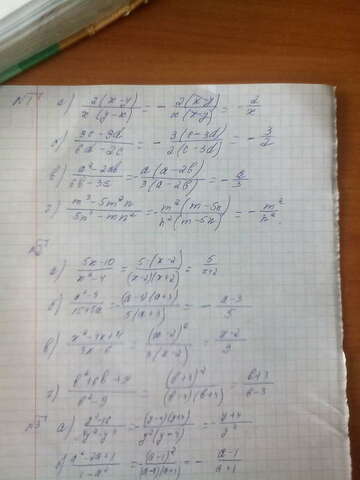 №1 а) 2(x-y)/x(y-x) = - 2(x-y)/x(x-y) = - 2/x
б) 3c-9d/6d-2c = - 3(c-3d)/2(c-3d) = - 3/2
в) a²-2ab/6b-3a = a(a-2b)/3(a-2b) = - a/3
г) m³-5m²n/5n³-mn² = - m²(m-5n)/n²(m-5n) = - m²/n²
а) 5x-10/x²-4 = 5·(x-2)/(x-2)(x+2) = 5/x+2
б) a²-9/15+5a = (a-3)(a+3)/5(a+3) = - a-3/5
в) x²-4x+4/3x-6 = (x-2)²/3(x-2) = x-2/3
г) b²+6b+9/b²-9 = (b+3)²/(b-3)(b+3) = b+3/b-3
№3 а)
б) a²-2a+1/1-a² = (a-1)²/(a-1)(a+1) = - a-1/a+1